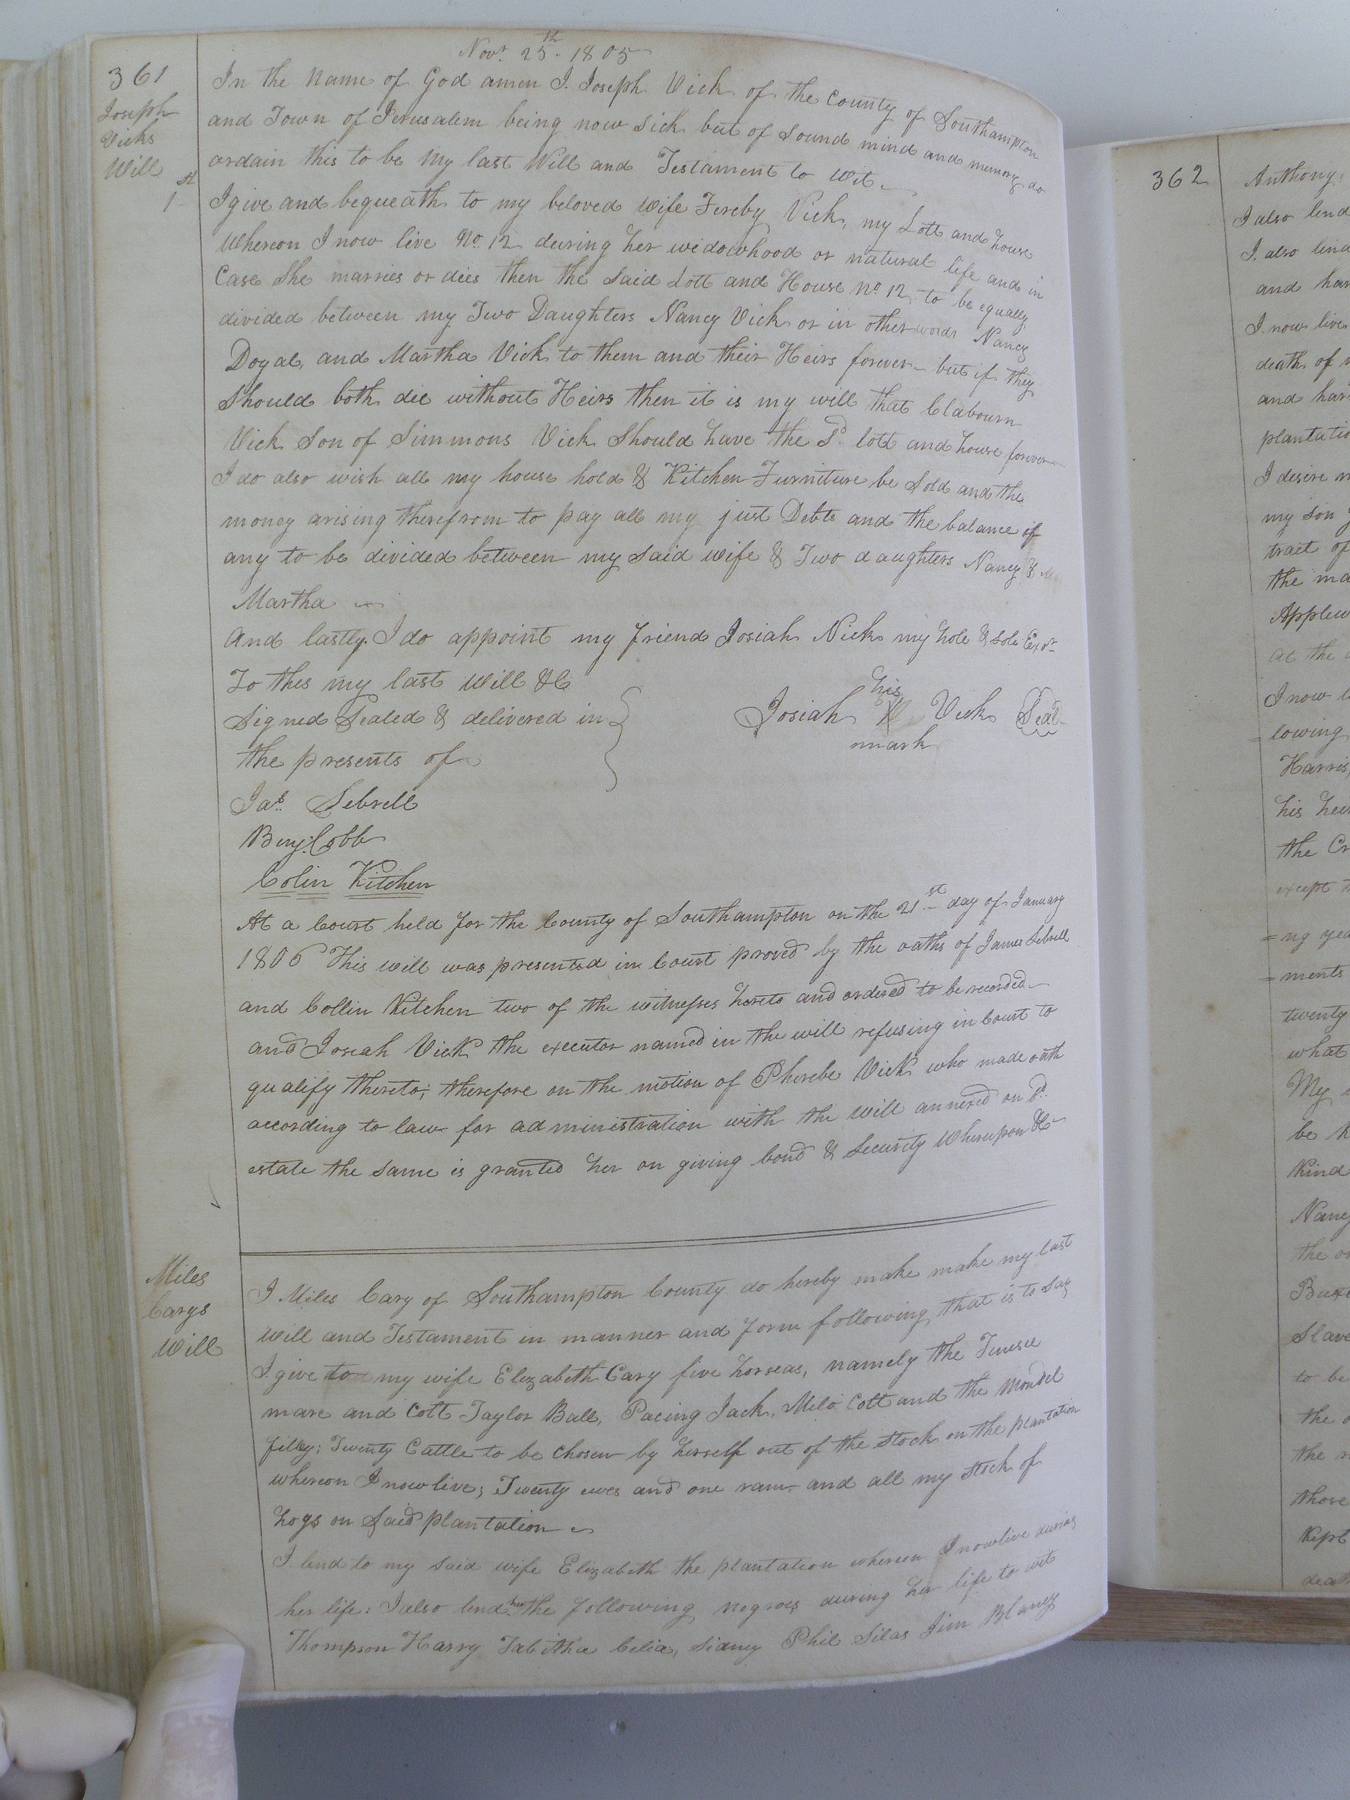 361
Joseph
Vicks
Will
Novr. 25th. 1805
In the Name of God amen I. Joseph Vick of the County of Southampton
and Town of Jerusalem being now sick but of sound mind and memory do
ordain this to be my last Will and Testament to wit
1st
I give and bequeath to my beloved wife Fereby Vick, my Lott and house
Whereon I now live No. 12 during her widowhood or natural life and in
Case She marries or dies then the said Lott and House No. 12, to be equally
divided between my Two Daughters Nancy Vick or in other words Nancy
Doyal, and Martha Vick to them and their Heirs forever but if they
Should both die without Heirs then it is my will that Clabourn
Vick Son of Simmons Vick Should have the Sd. lott and house forever
I do also wish all my house hold & Kitchen Furniture be Sold and the
money arising therefrom to pay all my just Debts and the balance if
any to be divided between my said wife & Two daughters Nancy &
Martha
And lastly I do appoint my friend Josiah Vick my hole & sole Exor.
To thes my last Will &C
Signed Sealed & delivered in
the presents of
Josiah his Vick Seal
mark
Jas. Sebrell
Benj. Cobb
Colin Kitchen
At a Court held for the County of Southampton on the 21st day of January
1806 This will was presented in Court proved by the oaths of James Sebrell
and Collin Kitchen two of the witnesses hereto and ordered to be recorded
and Josiah Vick the executor named in the will refusing in Court to
qualify thereto; therefore on the motion of Pherebe Vick who made oath
according to law for administration with the will annexed on Sd.
estate the same is granted her on giving bond & Security Whereupon &c
Miles
Carys
Will
I Miles Cary of Southampton County do hereby make make my last
Will and Testament in manner and form following, that is to say
I give to my wife Elizabeth Cary five horses, namely the
mare and Colt Taylor Ball, Pacing Jack, Milo Colt and the
filly; Twenty Cattle to be Chosen by herself out of the stock on the plantation
whereon I now live; Twenty ewes and one ram and all my stock of
hogs on Said plantation
I lend to my said wife Elizabeth the plantation whereon I now live during
her life: I also lend her the following negroes during her life to wit
Thompson Harry Tabitha Celia, Sidney Phil Silas Jim Blaney
362
Anthony,
I also lend
I also lend
and har
I now live
death of
and har
plantatio
I desire
my son
tract of
the ma
Applew
at the
I now
lowing
Harris
his hei
the Cr
except
=ng yea
=ments
twenty
what
My
be
Kind
Nancy
the
Slave
to be
the
the
those
Kept
deat